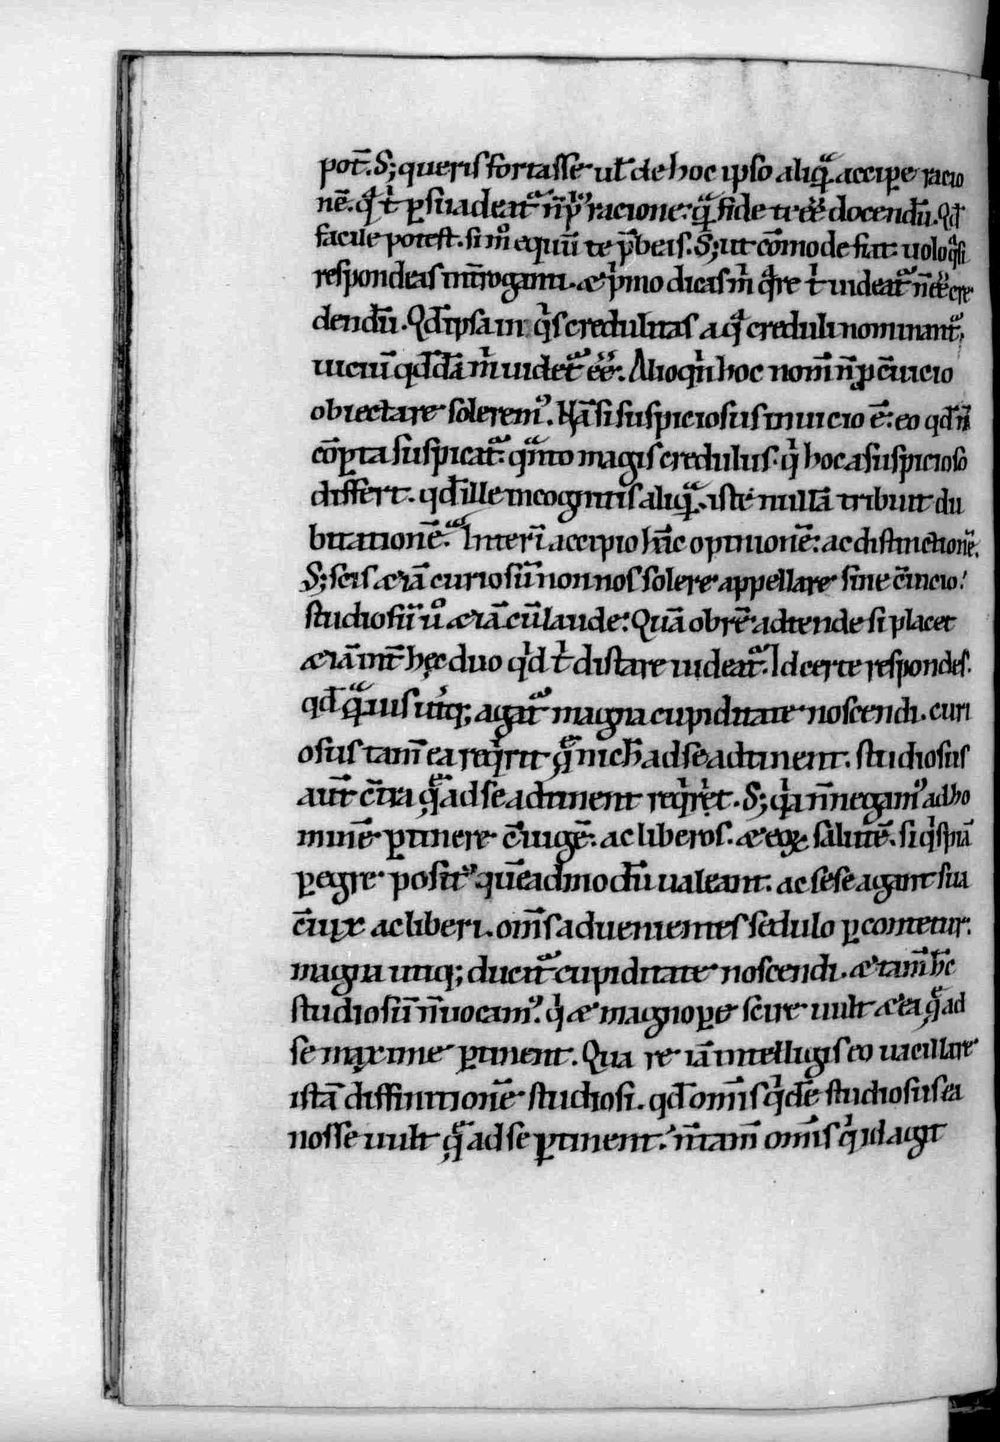 pot̄. S; queris fortasse ul̄ de hoc ipso aliquā accipe racio
nē. q̄ t' ꝑsuadeat᷑ n̄ p'us racione: quā fide te ēē docendū. Qd̄
facile potest. si m̊ equū te p̄beis. S; ut cōmode fiat uolo q̄si
respondeas int̄roganti. & p'mo dicas m' q̄re t' uideat᷑ n̄ ēē cre
dendū. Qd̄ ipsa inq's credulitas a q̄ creduli nominant᷑,
uiciū qd̄dā m' uidet᷑ ēē. Alioq'n hoc nom̄ n̄ ꝓ c̄uicio
obiectare solerem᷒. Nā si suspiciosus in uicio ē: eo qd̄ n̄
cōꝑta suspicat᷑: quāto magis credulus. q' hoc a suspicioso
differt. qd̄ ille incognitis aliquā. iste nullā tribuit du
bitationē. Inter̄i accipio hūc opinionē: ac distinctionē.
S; scis &iā curiosū non nos solere appellare sine c̄uicio:
studiosū ů &iā cū laude: Quā obrē adtende si placet
&iā int̄ hęc duo q'd t' distare uideat᷑. Id certe respondes.
qd̄ quāuis ut'q; agat᷑ magna cupiditate noscendi. curi
osus tam̄ ea req'rit quę nich̄ ad se adtinent. studiosus
aut̄ c̄tra quę ad se adtinent req'ret. S; q'a n̄ negam᷒ ad ho
minē ꝑtinere c̄iugē. ac liberos. & eoꝝ salutē. si q'spiā
ꝑegre posit᷒ quēadmodū ualeant. ac sese agant sua
c̄iux ac liberi. om̄s aduenientes sedulo ꝑcontetur.
magna utiq; ducit᷑ cupiditate noscendi. & tam̄ h̄c
studiosū n̄ uocam᷒. q' & magnoꝑe scire uult & ea quę ad
se maxime ꝑtinent. Qua re iā intelligis eo uacillare
istā diffinitionē studiosi. qd̄ om̄is q'dē studiosus ea
nosse uult quę ad se ꝑtinent: n̄ tam̄ om̄is q' id agit